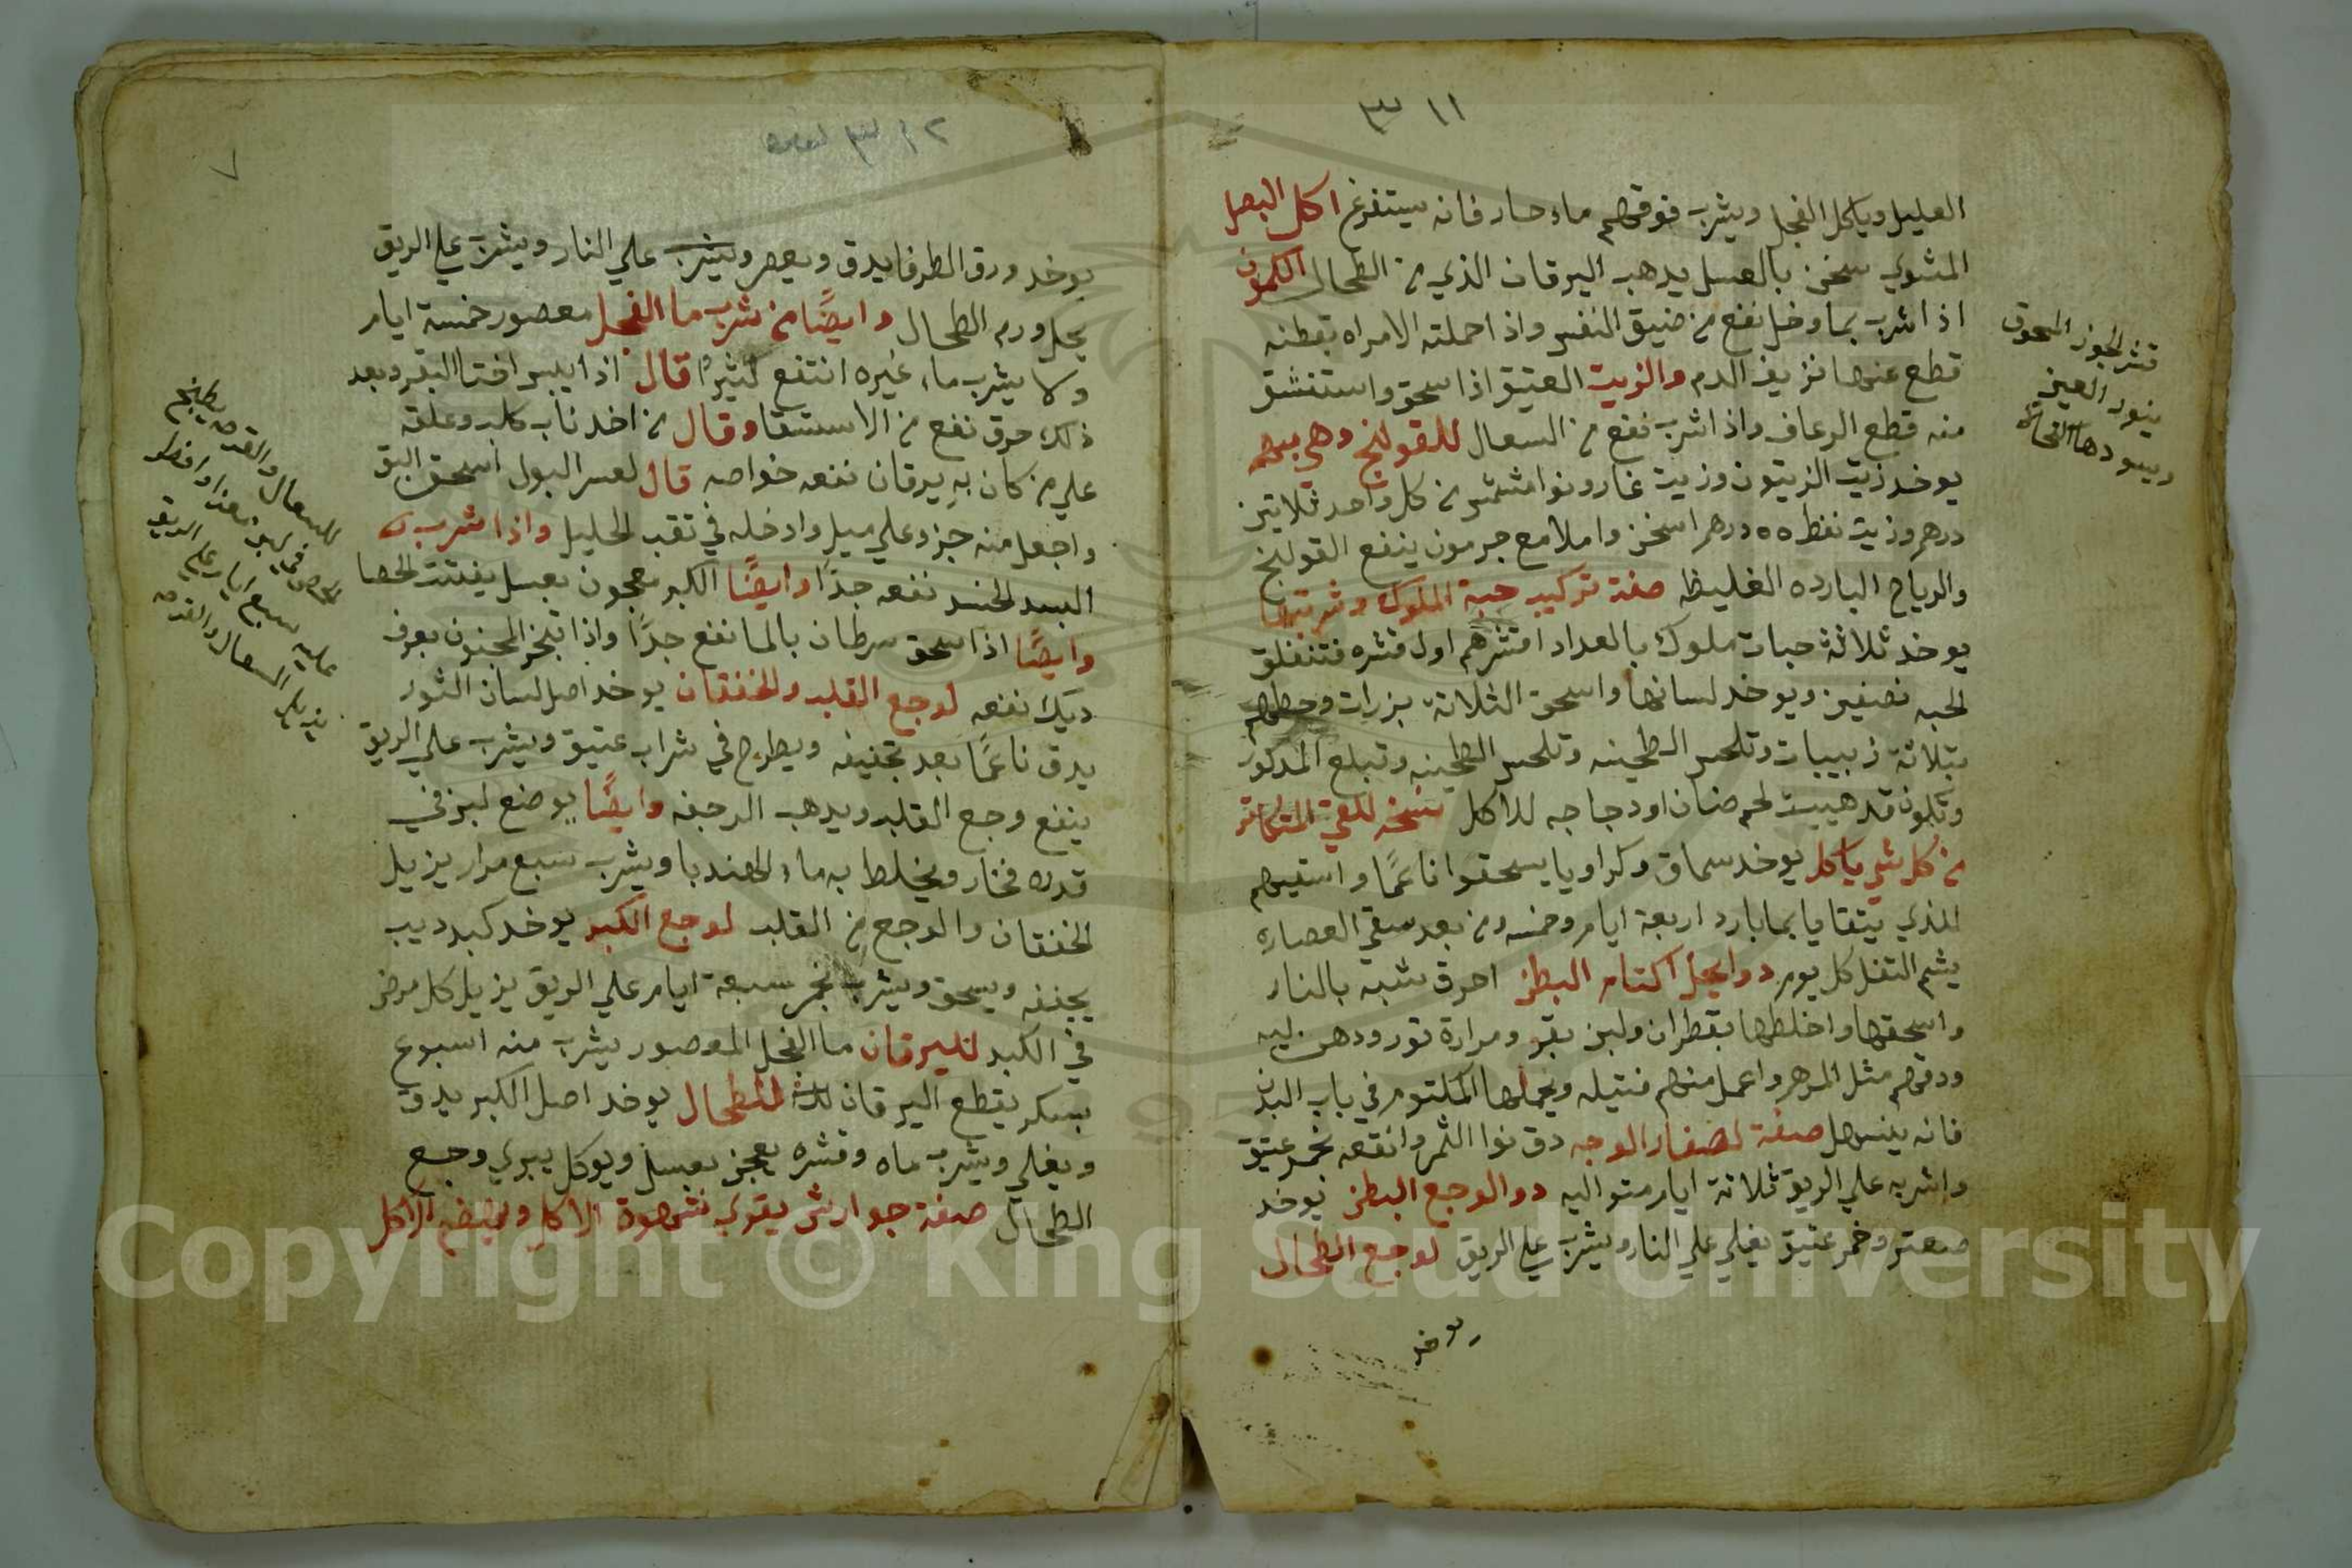 ١١ ٣
العليل وياكل الفجل ويشرب فوقهم ماء حار فانه يستفرغ اكل البصل
المشوي سخن بالعسل يدهب اليرقان الذي من الطحال الكمون
اذا شرب بما وخل نفع من ضيق النفس واذا حملته الامراه بقطنه
قطع عنها نزيف الدم والزيت العتيق اذا سحق واستنشق
منه قطع الرعاف واذا شرب نفع من السعال للقولنج وهي
يوخد زيت الزيتون وزيت غار ونوا مشمش من كل واحد ثلاتين
درهم وزيت نفط ٥٥ درهم اسخن واملا مع جرمون ينفع القولنج
والرياح البارده الغليظه صفة تركيب حبة الملوك وشربتها
يوخد ثلاثة حبات ملوك بالعداد اقشرهم اول قشره فتنفلق
الحبه نصفين ويوخد لسانها واسحق الثلاتة بزرات وحطهم
بتلاتة زبيبات وتلحس الطحينه وتلحس الطحينه وتبلع المدكور
وتكون قد هييت لحم ضان او دجاجه للاكل نسخه للقي المتكاتر
من كل شي ياكل يوخد سماق وكراويا يسحقوا ناعمًا واسقيهم
الذي يتقايا بما بارد اربعة ايام وخمسه ومن بعد سقي العصاره
يشم التفل كل يوم دوا يحل اكتام البطن احرق شبة بالنار
واسحقها واخلطها بقطران ولبن بقر ومرارة تور ودهن ليه
ودقهم مثل المرهم واعمل منهم فتيله ويحملها المكتوم في باب البدن
فانه ينسهل صفة لصفار الوجه دق نوا التمر وانقعه بخمر عتيق
واشربه علي الريق ثلاتة ايام متواليه دوا لوجع البطن يوخد
صعتر وخمر عتيق يغلي علي النار ويشرب علي الريق لوجع الطحال
يوخد
قشر الجوز المحوق
ينور العين
ويسودها
١٢ ٣
٧
يوخد ورق الطرفا يدق ويعصر ويشرب علي النار ويشرب علي الريق
يحل ورم الطحال وايضًا من شرب ما الفجل معصور خمسة ايام
ولا يشرب ماء غيره انتفع كثيرًا قال اذا يبس اختا البقر وبعد
ذلك حرق نفع من الاستسقا وقال من اخد ناب كلب وعلقه
علي من كان به يرقان نفعه خواصه قال لعسر البول اسحق البق
واجعل منه جزو علي ميل وادخله في تقب الحليل واذا شرب
البسد الخشد نفعه جدًا وايضًا الكبر معجون بعسل يفتت الحصا
وايضًا اذا سحق سرطان بالما نفع جدًا واذا تبخر المجنون بعرف
ديك نفعه لوجع القلب والخفقان يوخد اصل لسان الثور
يدق ناعمًا بعد تجفيفه ويطرح في شراب عتيق ويشرب علي الريق
ينفع وجع القلب ويدهب الرجفه وايضًا يوضع لبن في
قدره فخار ويخلط به ماء الهندبا ويشرب سبع مرار يزيل
الخفقان والوجع من القلب لوجع الكبد يوخد كبد ديب
يجففه ويسحق ويشرب بخمر سبعة ايام علي الريق يزيل كل مرض
في الكبد لليرقان ما الفجل المعصور يشرب منه اسبوع
بسكر يقطع اليرقان للطحال يوخد اصل الكبر يدق
ويغلي ويشرب ماه وقشره يعجن بعسل ويوكل يبري وجع
الطحال صفة جوارش يقوي شهوة الاكل ويهضم الاكل
للسعال والقدحه يطبخ
عليه سبع ايام علي الريق
يذهب السعال والقدحه
Copyright © King Saud University